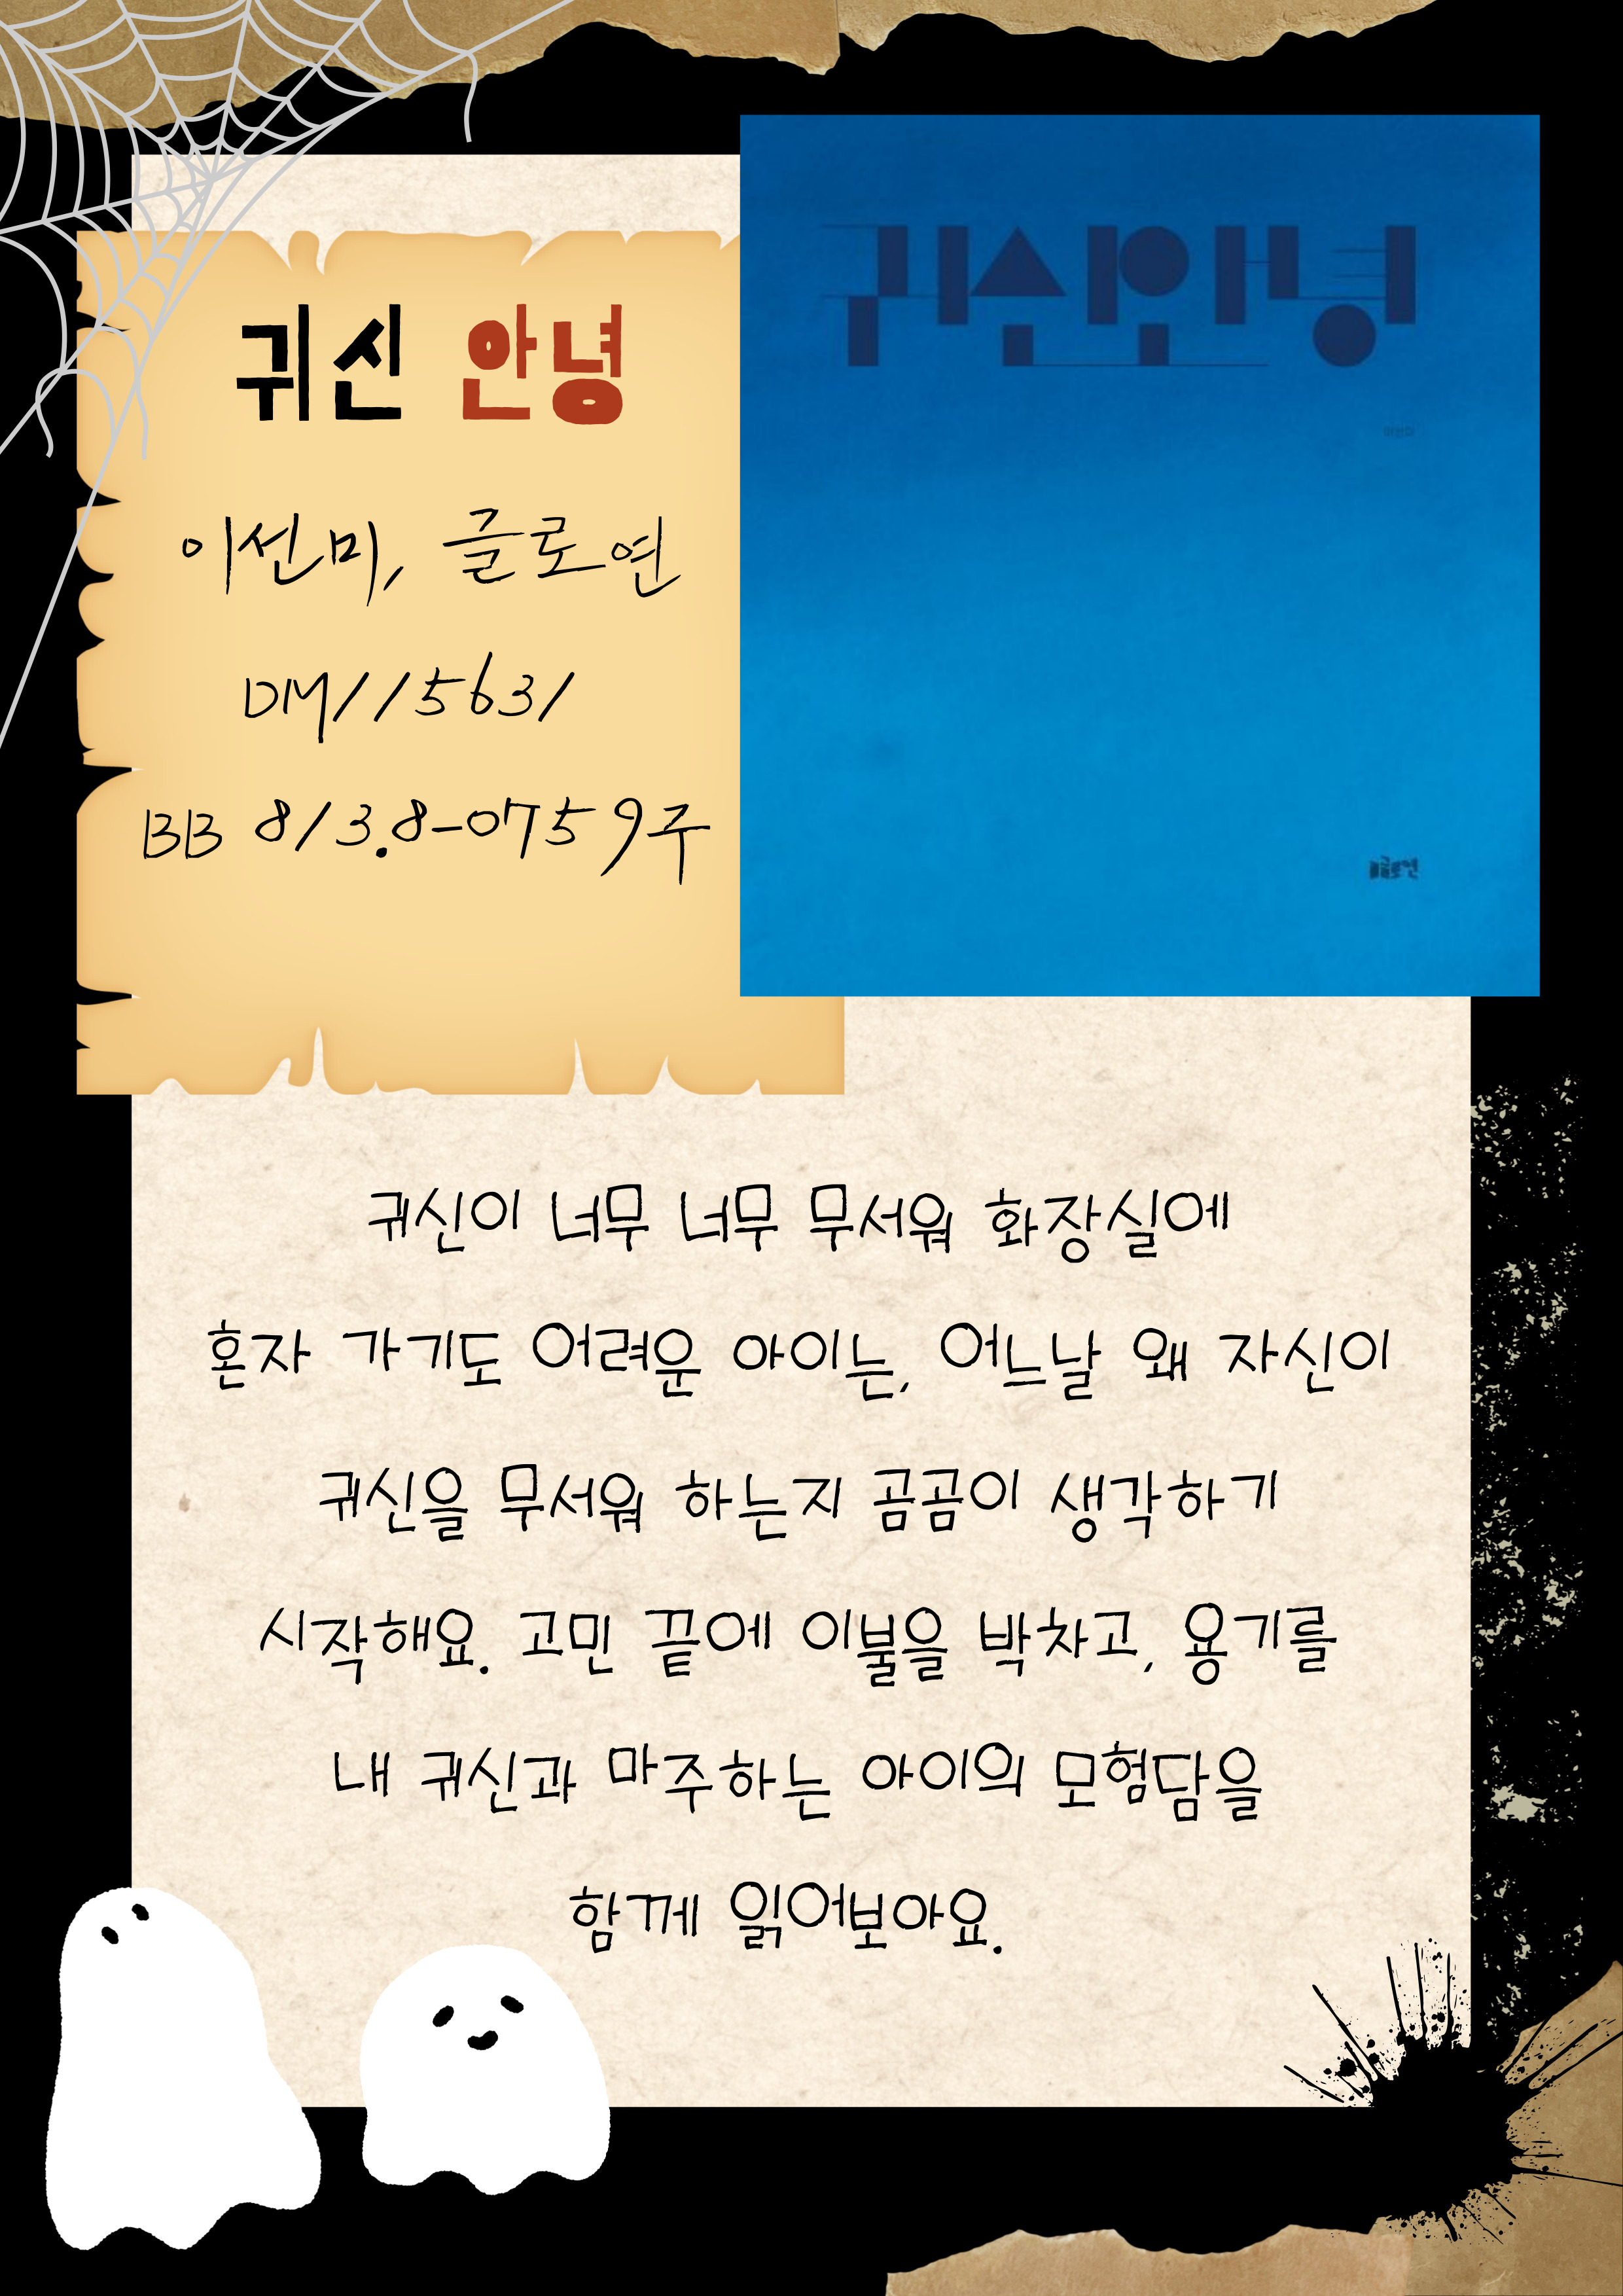 귀신 안녕
이선미, 글로연
DM115631
BB 813.8-0759구
귀신안녕
이선미
글로연
귀신이 너무 너무 무서워 화장실에
혼자 가기도 어려운 아이는, 어느날 왜 자신이
귀신을 무서워 하는지 곰곰이 생각하기
시작해요. 고민 끝에 이불을 박차고, 용기를
내 귀신과 마주하는 아이의 모험담을
함께 읽어보아요.